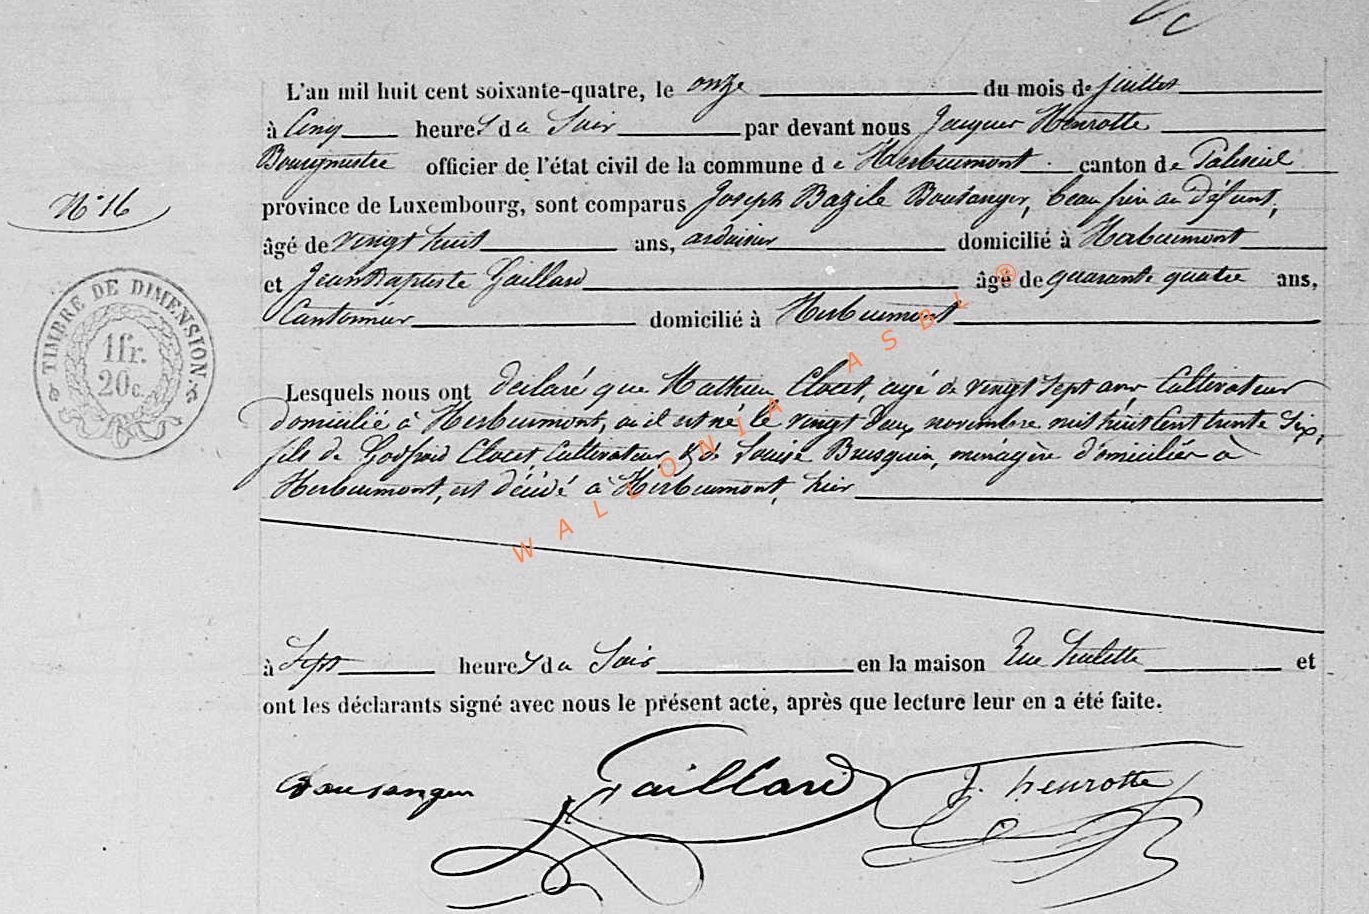 L'an mil huit cent soixante-quatre, le onze du mois de juillet
à cinq heures du Soir par devant nous Jacques Henrotte
Bourgmestre officier de l'état civil de la commune de Herbeumont canton de Paliseul
N° 16
province de Luxembourg, sont comparus Joseph Bazile Boulanger, beau frère du défunt,
âgé de vingt huit ans, ardoisier domicilié à Herbeumont
et Jean Baptiste Gaillard âgé de quarante quatre ans,
Cantonnier domicilié à Herbeumont
TIMBRE DE DIMENSION
1fr.
20c.
Lesquels nous ont déclaré que Mathieu Clocet, agé de vingt sept ans, Cultivateur
domicilié à Herbeumont, où il est né le vingt deux novembre mil huit cent trente six,
fils de Godfroid Clocet, Cultivateur & de Louise Brusquin, ménagère domiciliés à
Herbeumont, est décédé à Herbeumont, hier
WALLONIA ASBL ®
à Sept heures du Soir en la maison Rue et
ont les déclarants signé avec nous le présent acte, après que lecture leur en a été faite.
Boulanger Gaillard J. henrotte